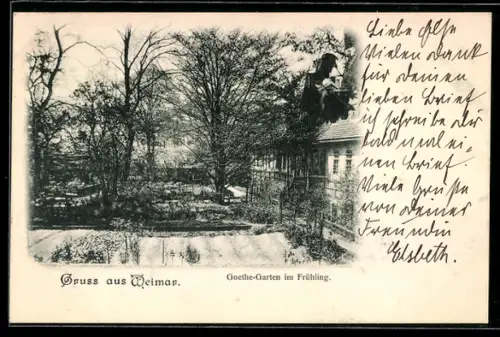 Liebe Else
Vielen Dank
für deinen
lieben Brief
ich schreibe dir
bald mal ei-
nen Brief.
Viele Grüsse
von deiner
Freundin
Elsbeth.
Gruss aus Weimar.
Goethe-Garten im Frühling.